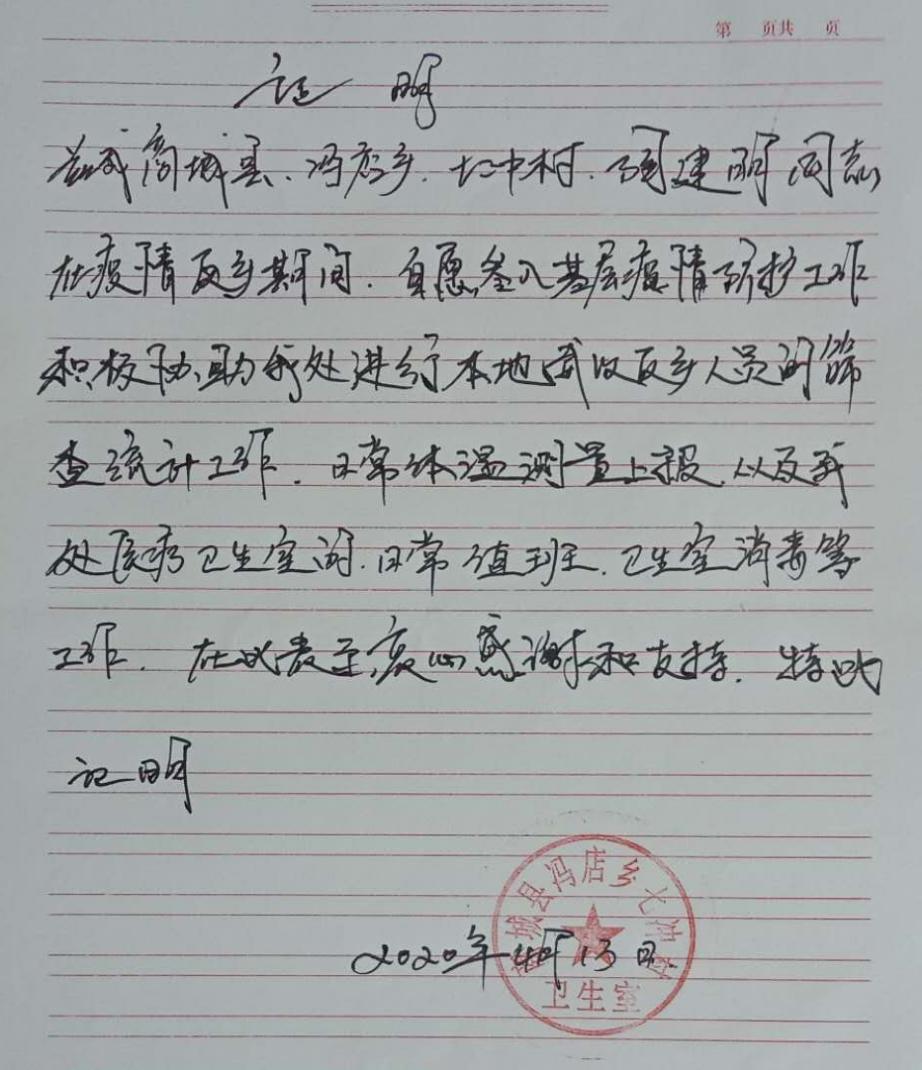 第 页共 页
证明
兹我商城县、冯店乡、七冲村、建明同志
在疫情反乡期间、自愿参入基层疫情防护工作
积极协助我处进行本地或以反乡人员的筛
查统计工作、日常体温测量上报、以及我
处医疗卫生室的、日常值班、卫生室消毒等
工作、在此表示衷心感谢和支持、特此
证明
商城县冯店乡七冲村
卫生室
2020年4月13日